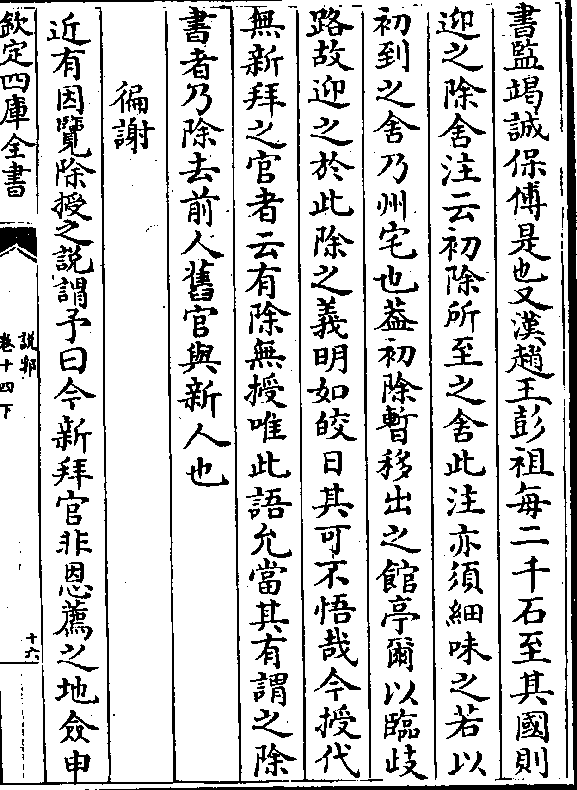 書監竭誠保傅是也又漢趙王彭祖每二千石至其國則
迎之除舍注云初除所至之舍此注亦須細味之若以
初到之舍乃州宅也葢初除暫移出之館亭爾以臨歧
路故迎之於此除之義明如皎日其可不悟哉今授代
無新拜之官者云有除無授唯此語允當其有謂之除
書者乃除去前人舊官與新人也
徧謝
近有因覽除授之説謂予曰今新拜官非恩薦之地僉申
欽定四庫全書
説郛
卷十四下
十六